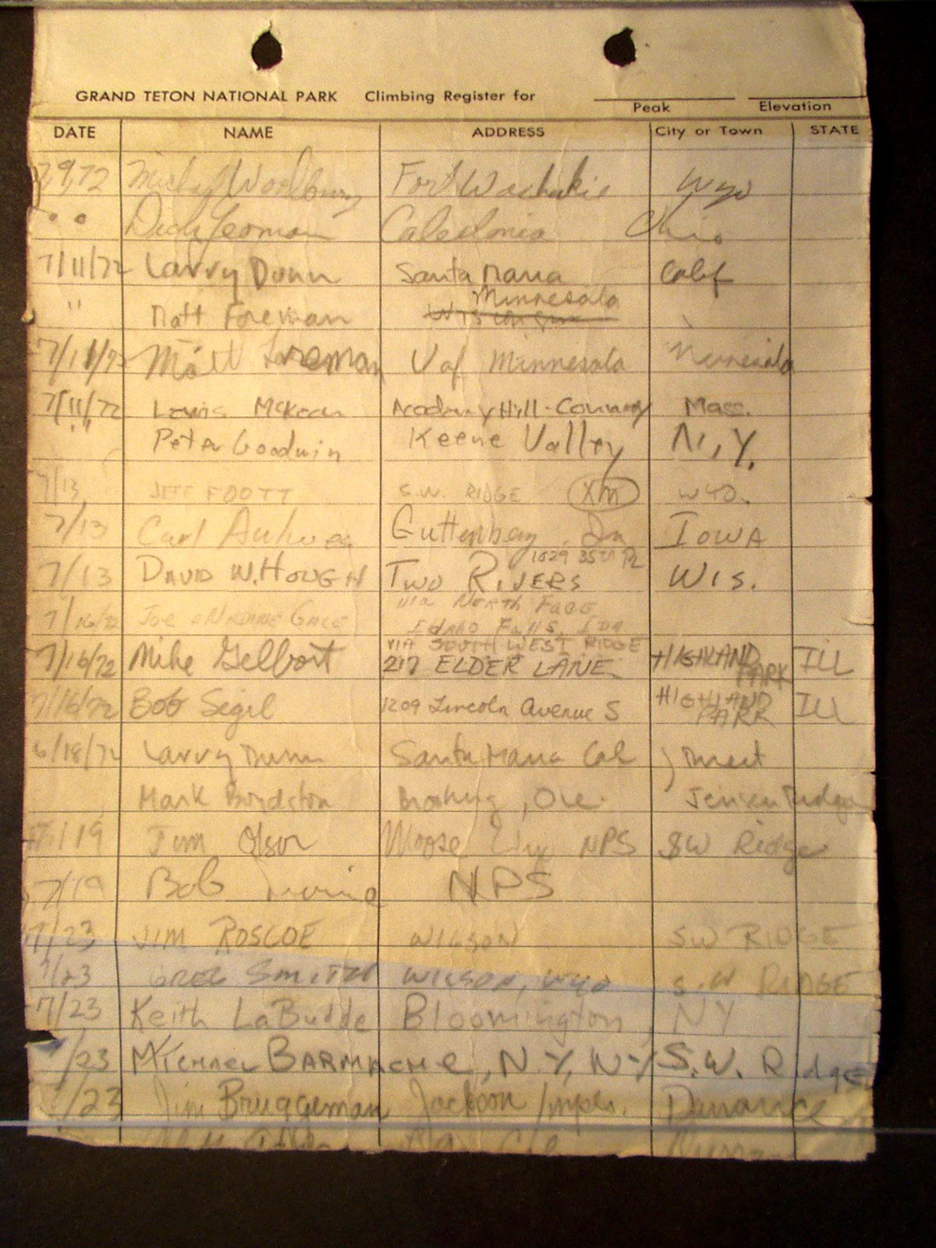 GRAND TETON NATIONAL PARK Climbing Register for
Peak Elevation
DATE NAME ADDRESS City or Town STATE
7/9/72 Micky Woodbury Fort Washakie Wyo
" " Dick Yeoman Caledonia Ohio
7/11/72 Larry Dunn Santa Maria Calif
Minnesota
" Matt Foreman
7/11/72 Matt Foreman U of Minnesota Minnesota
7/11/72 Lewis McKean Mass.
" Peter Goodwin Keene Valley N.Y.
7/13 JEFF FOOTT S.W. RIDGE WYO.
7/13 Carl Guttenberg IOWA
1629 35TH PL
7/13 DAVID W. HOUGH TWO RIVERS WIS.
via NORTH FACE
7/16/72 Joe GALE IDAHO FALLS, IDA
VIA SOUTH WEST RIDGE
7/16/72 Mike Gelbort 217 ELDER LANE HIGHLAND PARK ILL
7/16/72 Bob Segil 1209 Lincoln Avenue S HIGHLAND PARK ILL
6/18/72 Larry Dunn Santa Maria Cal ) Direct
Mark Boydston , Ore. Jensen Ridge
7/19 Jim Olson Moose NPS SW Ridge
7/19 Bob Irvine NPS
7/23 JIM ROSCOE WILSON SW RIDGE
7/23 GREG SMITH WILSON, Wyo S.W RIDGE
7/23 Keith LaBudde Bloomington NY
/23 MICHAEL BARMACHE, N.Y., NY S.W. Ridge
/23 Jim Bruggeman Jackson